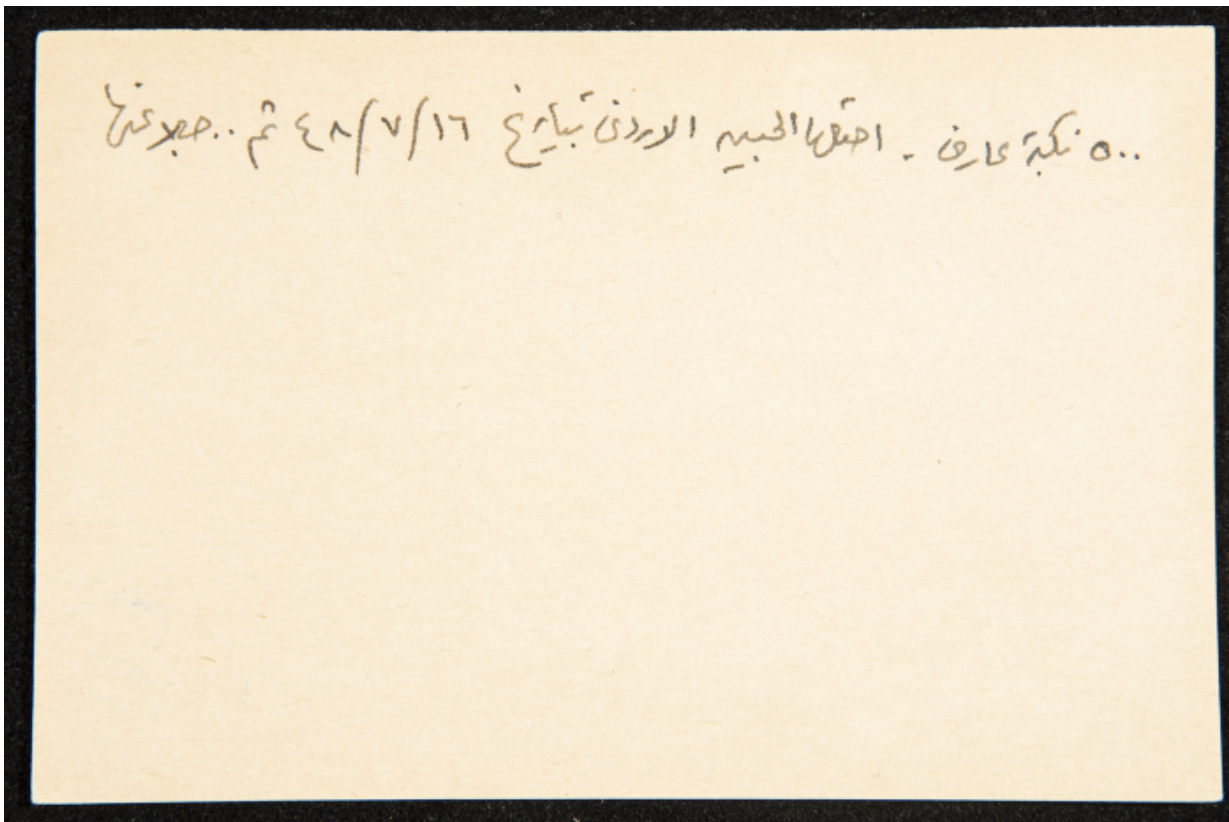 ٥٠٠ نكبة عارف - احتلها الجيش الاردني بتاريخ ١٦/٧/٤٨ ثم .. جلا عنها